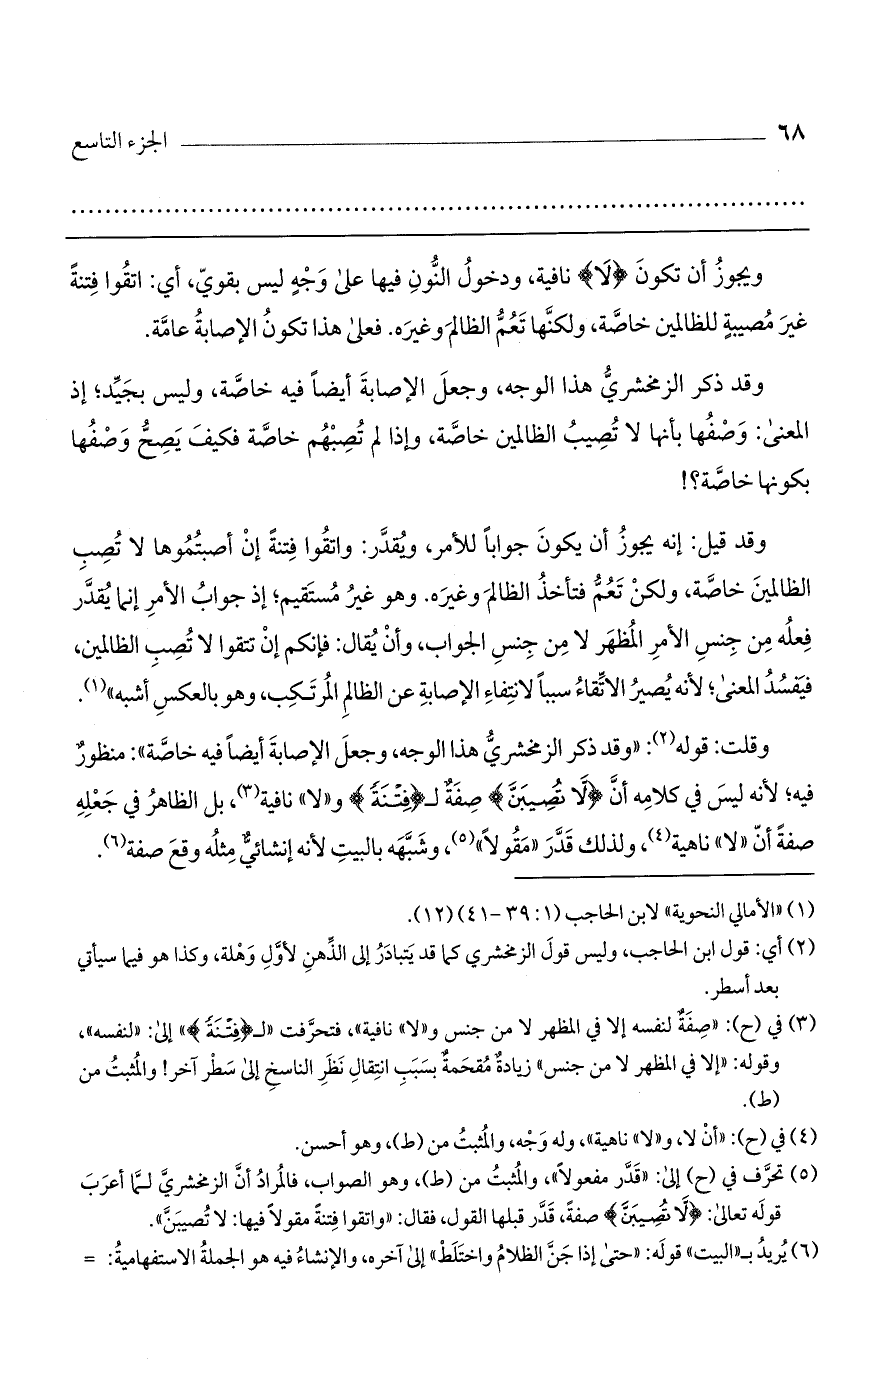 ٦٨ الجزء التاسع
ويجوزُ أن تكونَ ﴿لَا﴾ نافية، ودخولُ النُّونِ فيها علىٰ وَجْهٍ ليس بقويّ، أي: اتقُوا فِتنةً
غيرَ مُصيبةٍ للظالمين خاصَّة، ولكنَّها تَعُمُّ الظالمَ وغيرَه. فعلىٰ هذا تكونُ الإصابةُ عامَّة.
وقد ذكر الزمخشريُّ هذا الوجه، وجعلَ الإصابةَ أيضاً فيه خاصَّة، وليس بجَيِّد؛ إذ
المعنىٰ: وَصْفُها بأنها لا تُصِيبُ الظالمين خاصَّة، وإذا لم تُصِبْهُم خاصَّة فكيفَ يَصِحُّ وَصْفُها
بكونها خاصَّة؟!
وقد قيل: إنه يجوزُ أن يكونَ جواباً للأمر، ويُقدَّر: واتقُوا فِتنةً إنْ أصبتُمُوها لا تُصِبِ
الظالمينَ خاصَّة، ولكنْ تَعُمُّ فتأخذُ الظالمَ وغيرَه. وهو غيرُ مُستَقيم؛ إذ جوابُ الأمرِ إنما يُقدَّر
فِعلُه مِن جِنسِ الأمرِ المُظهَر لا مِن جِنسِ الجواب، وأنْ يُقال: فإنكم إنْ تتقوا لا تُصِبِ الظالمين،
فيَفسُدُ المعنىٰ؛ لأنه يُصيرُ الاتِّقاءُ سبباً لانتِفاءِ الإصابةِ عن الظالمِ المُرتَكِب، وهو بالعكسِ أشبه»(١).
وقلت: قوله(٢): «وقد ذكر الزمخشريُّ هذا الوجه، وجعلَ الإصابةَ أيضاً فيه خاصَّة»: منظورٌ
فيه؛ لأنه ليسَ في كلامِه أنَّ ﴿لَّا تُصِيبَنَّ﴾ صِفَةٌ لـ﴿فِتْنَةً﴾ و«لا» نافية(٣)، بل الظاهرُ في جَعْلِهِ
صفةً أنّ «لا» ناهية(٤)، ولذلك قَدَّرَ «مَقُولاً»(٥)، وشَبَّهَه بالبيتِ لأنه إنشائيٌّ مِثلُه وقعَ صفة(٦).
(١) «الأمالي النحوية» لابن الحاجب (١: ٣٩-٤١) (١٢).
(٢) أي: قول ابن الحاجب، وليس قولَ الزمخشري كما قد يَتبادَرُ إلى الذِّهنِ لأوَّلِ وَهْلة، وكذا هو فيما سيأتي
بعد أسطر.
(٣) في (ح): «صِفَةٌ لنفسه إلا في المظهر لا من جنس و«لا» نافية»، فتحرَّفت «لـ﴿فِتْنَةً﴾» إلىٰ: «لنفسه»،
وقوله: «إلا في المظهر لا من جنس» زيادةٌ مُقحَمةٌ بسَبَبِ انتِقالِ نَظَرِ الناسخِ إلىٰ سَطْرٍ آخر! والمُثبتُ من
(ط).
(٤) في (ح): «أنْ لا، و«لا» ناهية»، وله وَجْه، والمُثبتُ من (ط)، وهو أحسن.
(٥) تحرَّف في (ح) إلىٰ: «قَدَّر مفعولاً»، والمُثبتُ من (ط)، وهو الصواب، فالمُرادُ أنَّ الزمخشريَّ لـمَّا أعرَبَ
قولَه تعالىٰ: ﴿لَّا تُصِيبَنَّ﴾ صفة، قَدَّر قبلها القول، فقال: «واتقوا فِتنةً مقولاً فيها: لا تُصيبَنَّ».
(٦) يُريدُ بـ«البيت» قولَه: «حتىٰ إذا جَنَّ الظلامُ واختَلَطْ» إلىٰ آخره، والإنشاءُ فيه هو الجملةُ الاستفهاميةُ: =